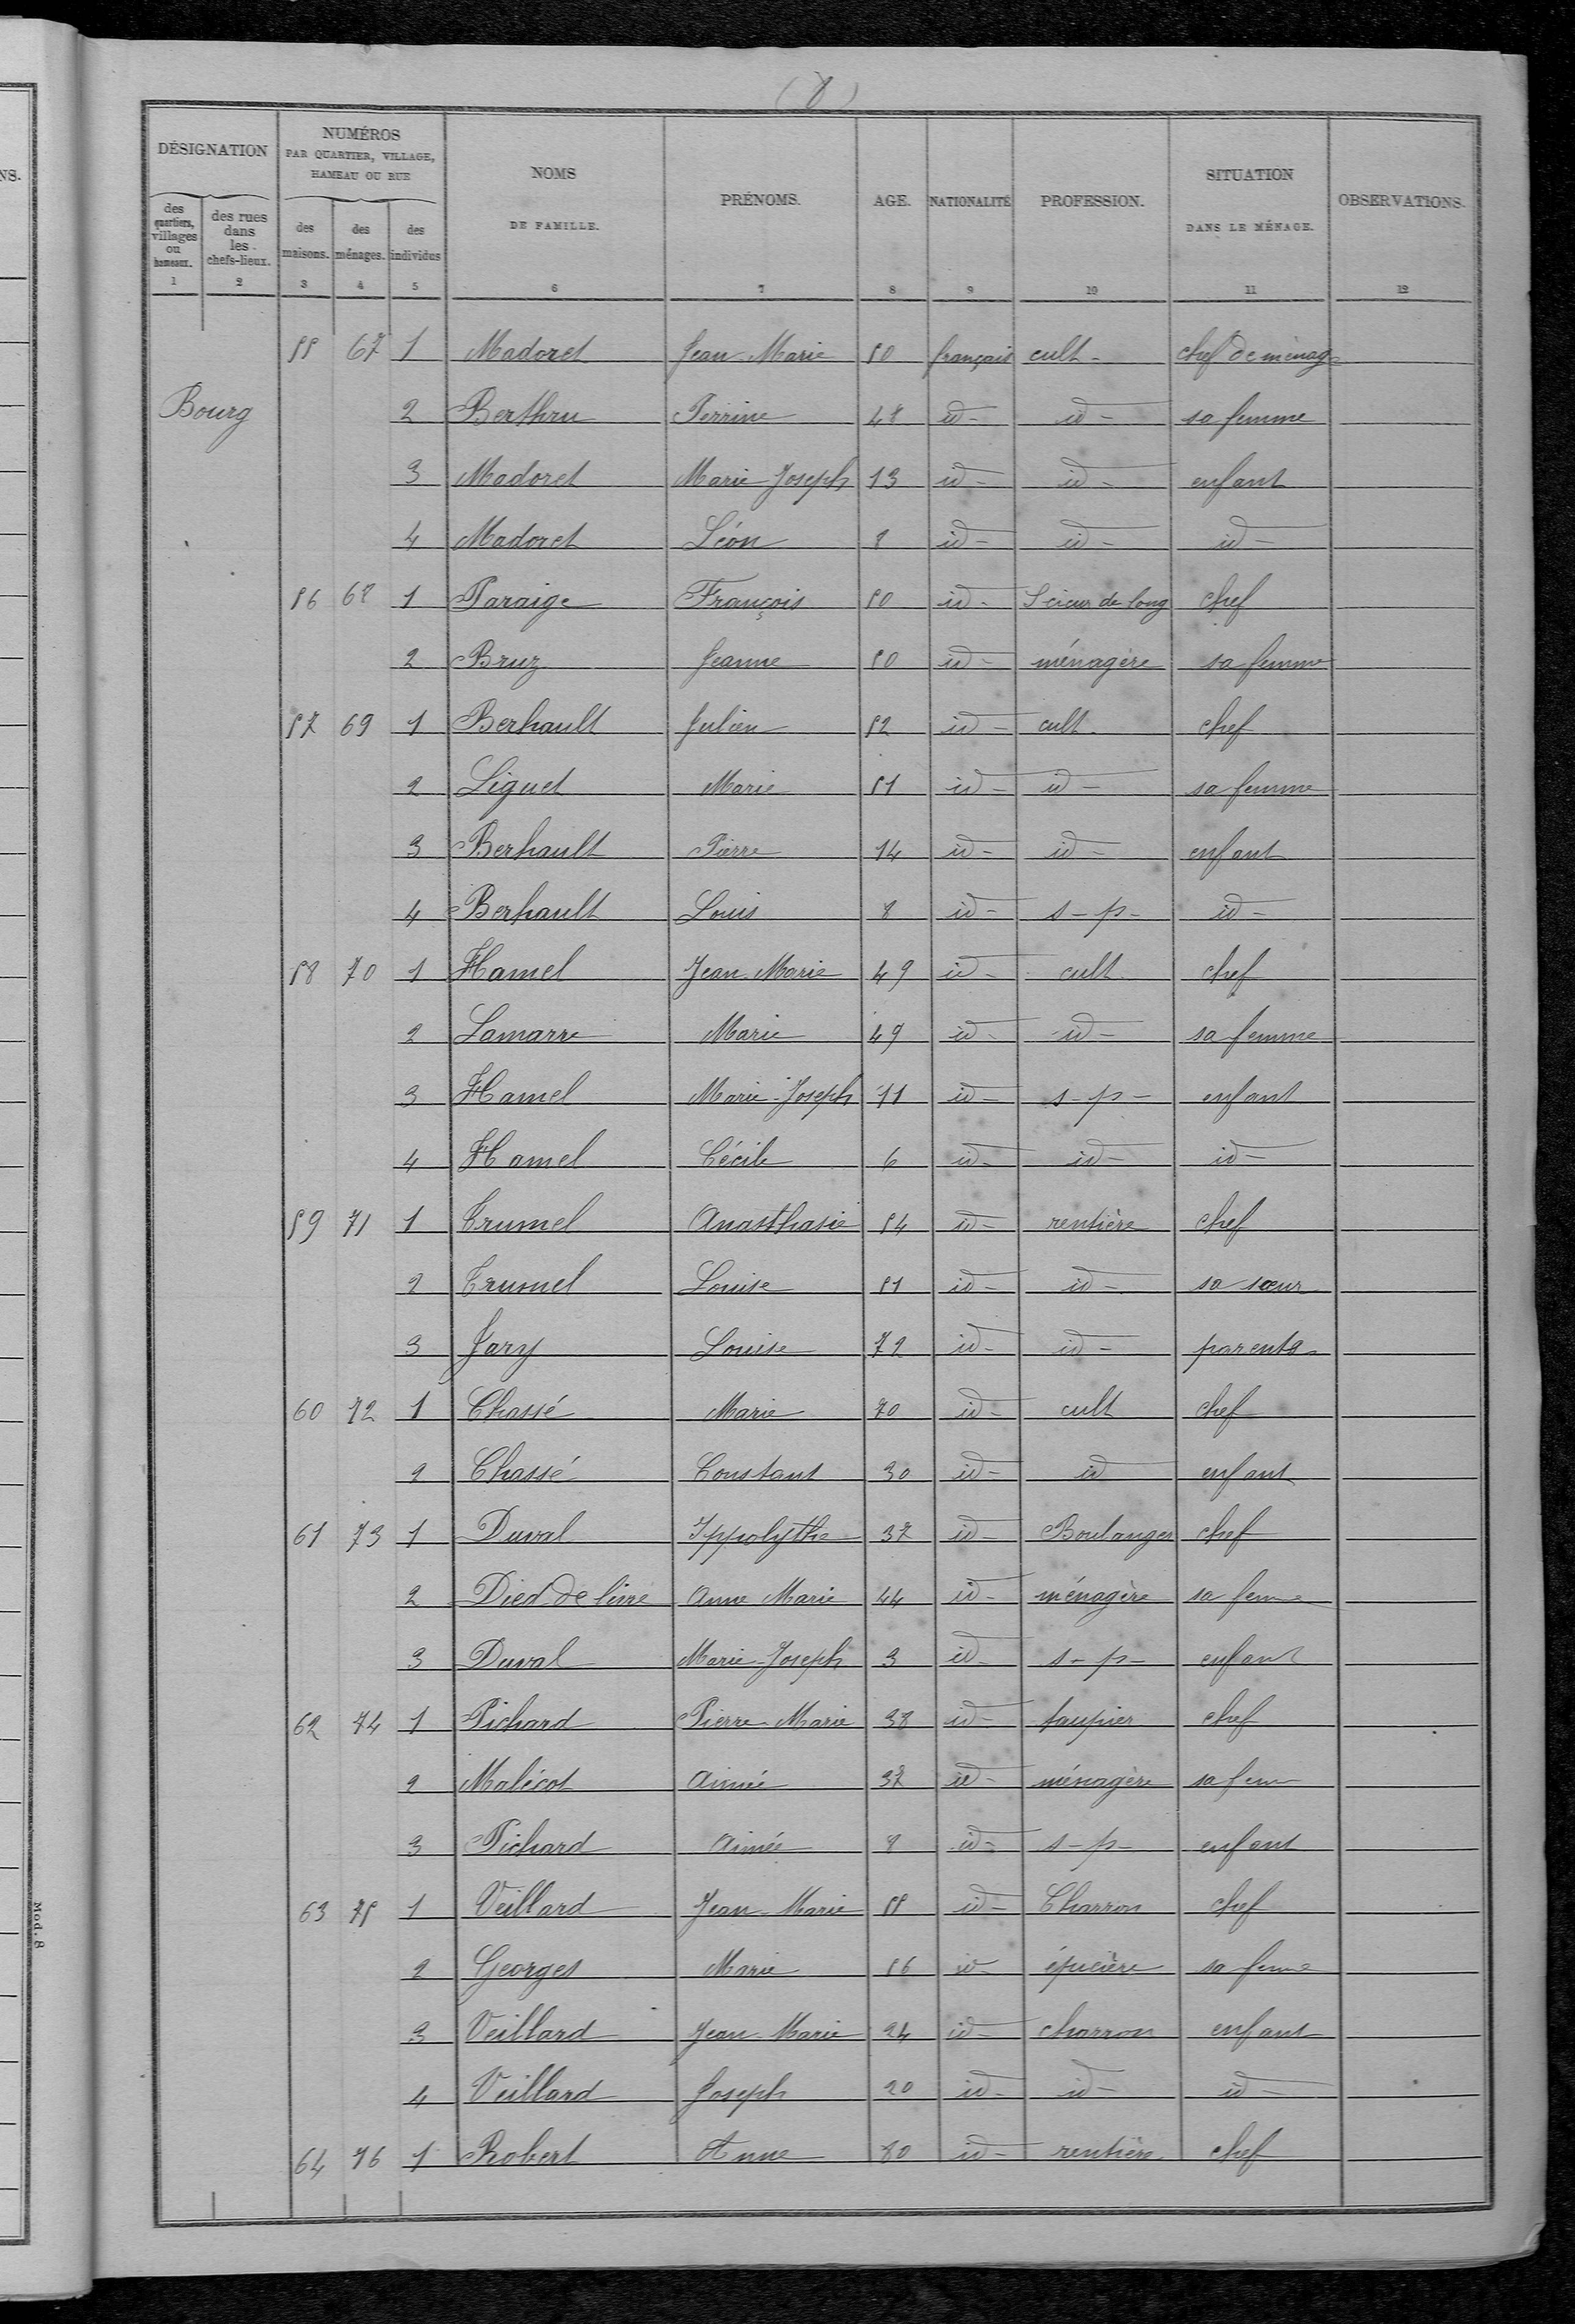 (8)
DÉSIGNATION
NUMÉROS
PAR QUARTIER, VILLAGE,
HAMEAU OU RUE
NOMS
DE FAMILLE.
PRÉNOMS.
AGE.
NATIONALITÉ
PROFESSION.
SITUATION
DANS LE MÉNAGE.
OBSERVATIONS.
des quartiers, villages ou hameaux.
des rues dans les chefs-lieux.
des maisons.
des ménages.
des individus
1 2 3 4 5 6 7 8 9 10 11 12
55 67 1 Madoret Jean-Marie 50 français cult- chef de ménage
Bourg 2 Berthru Perrine 48 id- id- sa femme
3 Madoret Marie-Joseph 13 id- id- enfant
4 Madoret Léon 8 id- id- id-
56 68 1 Paraige François 50 id- Scieur de long chef
2 Bruz Jeanne 50 id- ménagère sa femme
57 69 1 Berhault Julien 52 id- cult. chef
2 Liguet Marie 51 id- id- sa femme
3 Berhault Pierre 14 id- id- enfant
4 Berhault Louis 8 id- s-p- id-
58 70 1 Hamel Jean-Marie 49 id- cult. chef
2 Lamarre Marie 49 id- id- sa femme
3 Hamel Marie-Joseph 11 id- s-p- enfant
4 Hamel Cécile 6 id- id- id-
59 71 1 Trumel Anasthasie 54 id- rentière chef
2 Trumel Louise 51 id- id- sa sœur
3 Jary Louise 72 id- id- parente
60 72 1 Chassé Marie 70 id- cult chef
2 Chassé Constant 30 id- id enfant
61 73 1 Duval Yppolythe 37 id- Boulanger chef
2 Died de line Anne Marie 44 id- ménagère sa femme
3 Duval Marie-Joseph 3 id- s-p- enfant
62 74 1 Pichard Pierre-Marie 38 id- taupier chef
2 Malécot Aimée 37 id- ménagère sa fem
3 Pichard Aimée 8 id- s-p- enfant
63 75 1 Veillard Jean-Marie 55 id- Charron chef
2 Georges Marie 56 id- épicière sa femme
3 Veillard Jean-Marie 24 id- charron enfant
4 Veillard Joseph 20 id- id- id-
64 76 1 Robert Anne 80 id- rentière chef
NS.
Mod. 8